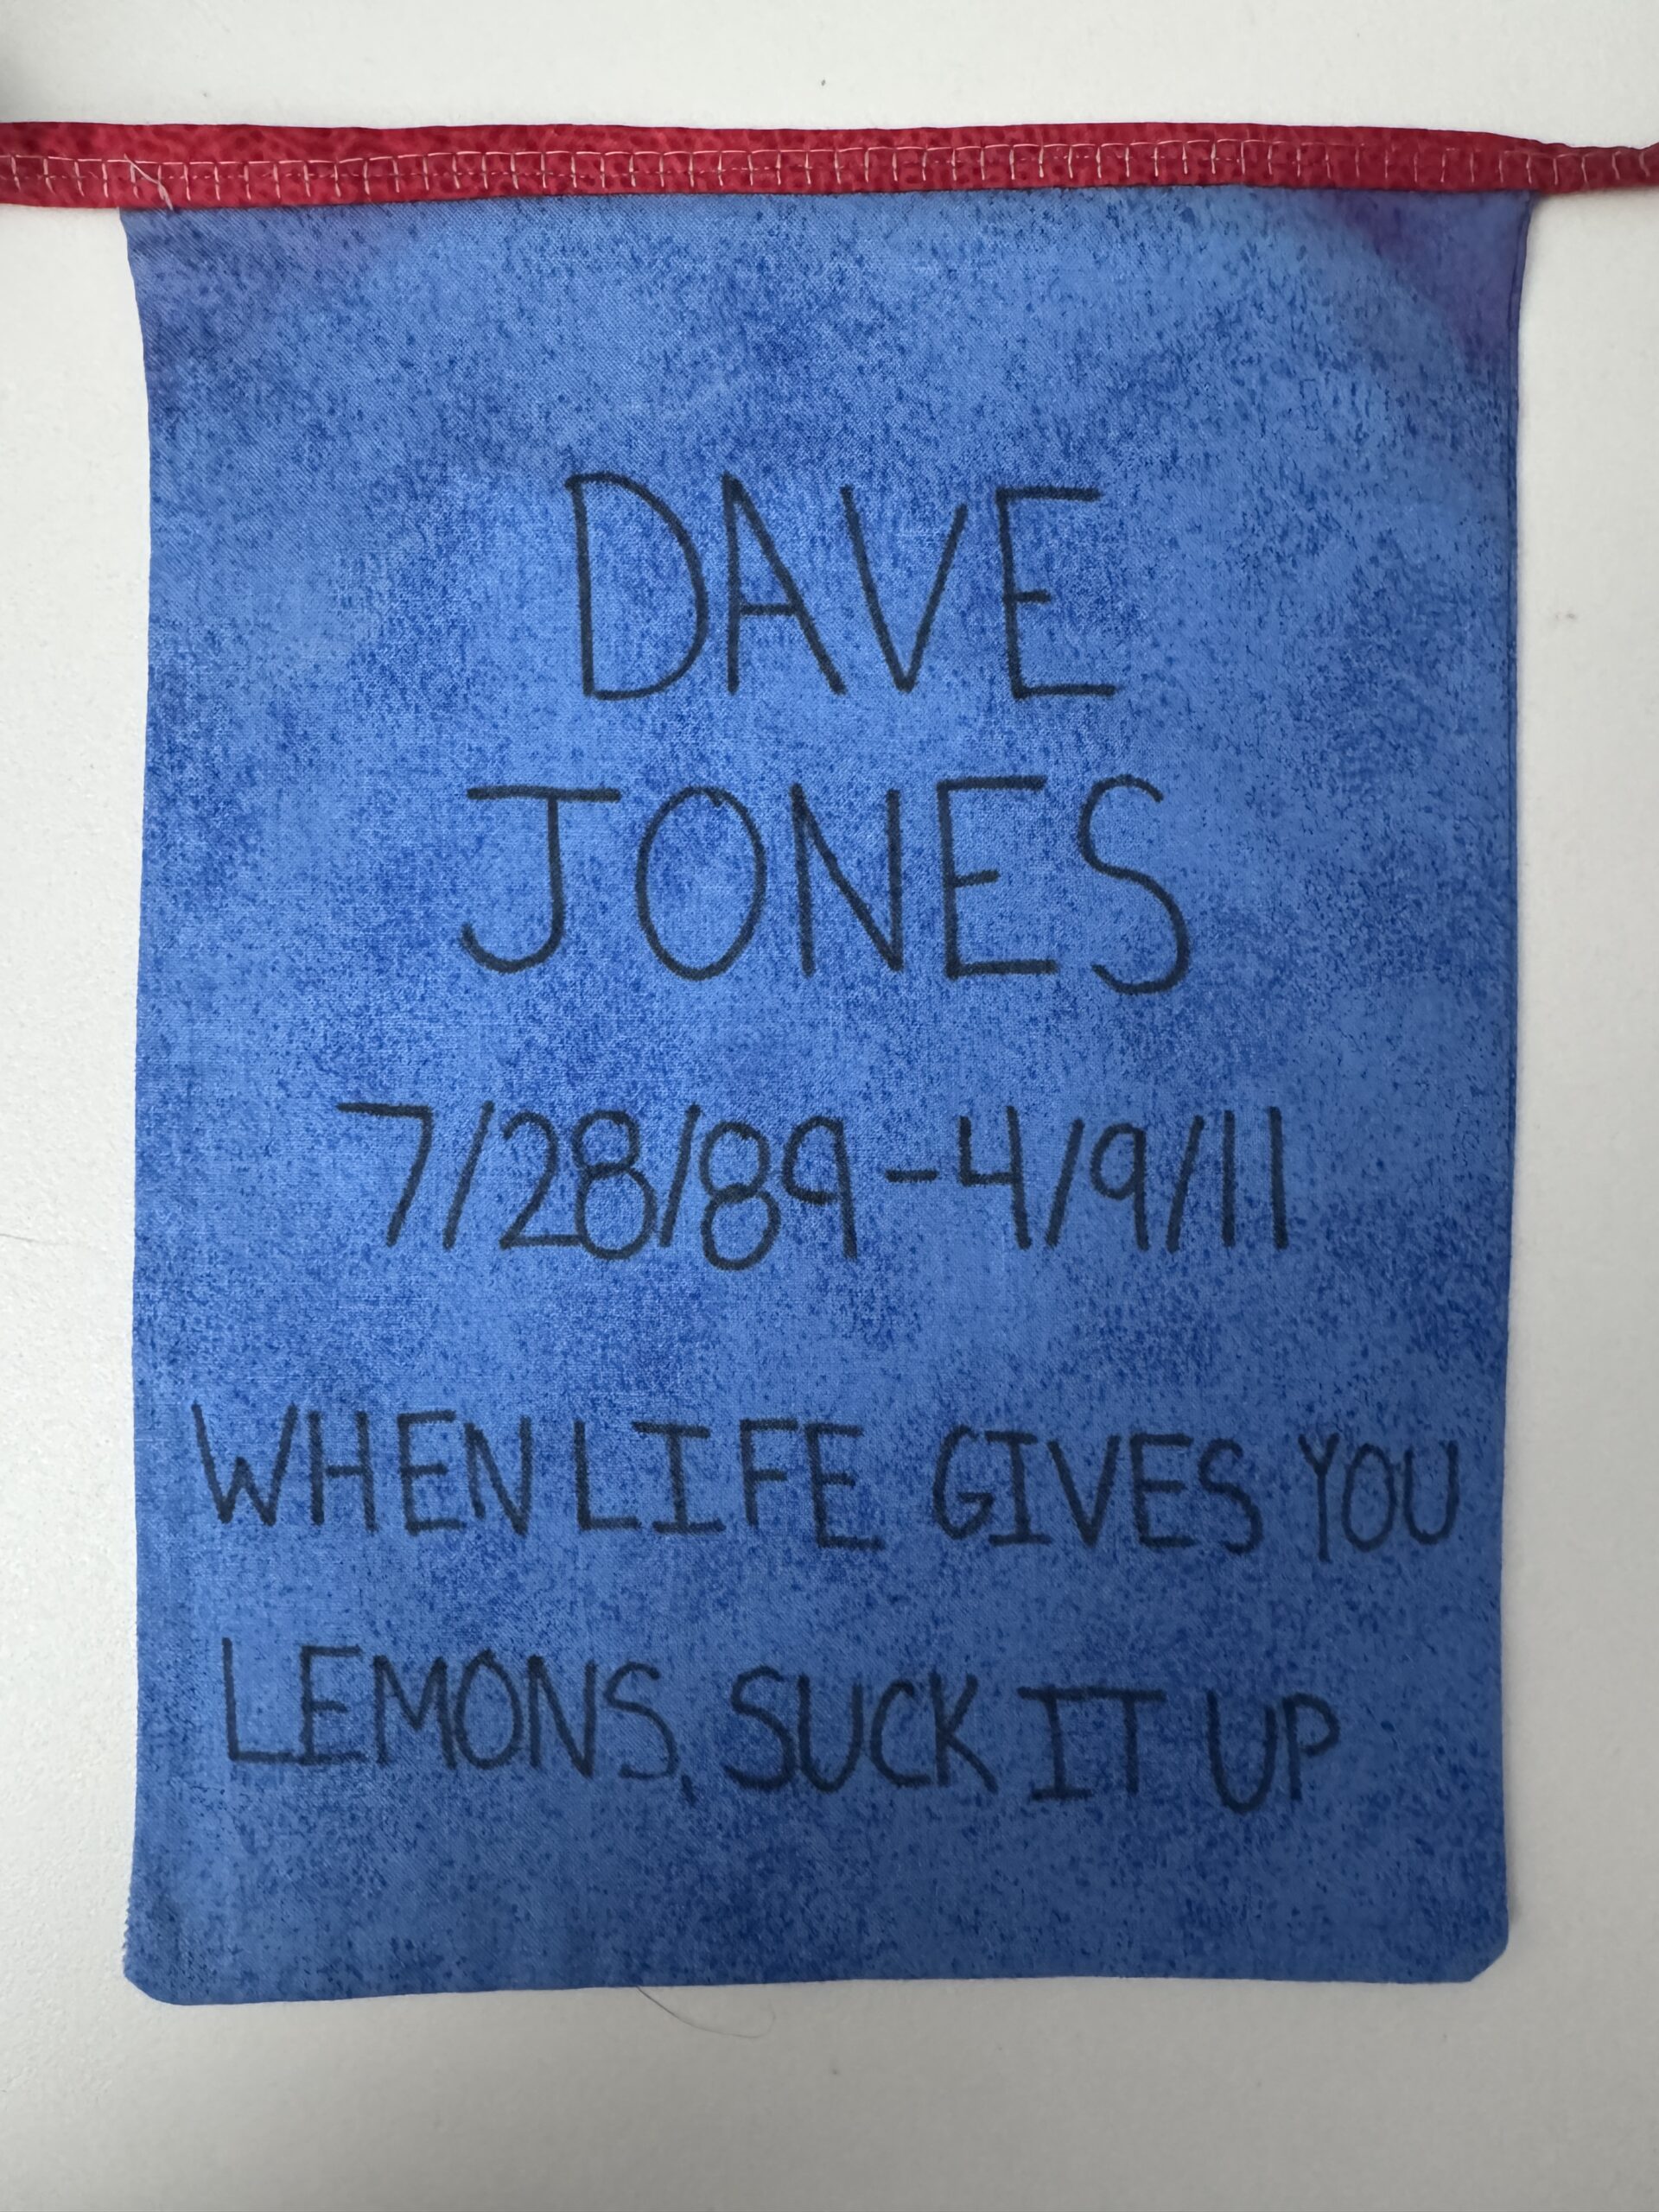 DAVE
JONES
7/28/89-4/9/11
WHEN LIFE GIVES YOU
LEMONS, SUCK IT UP